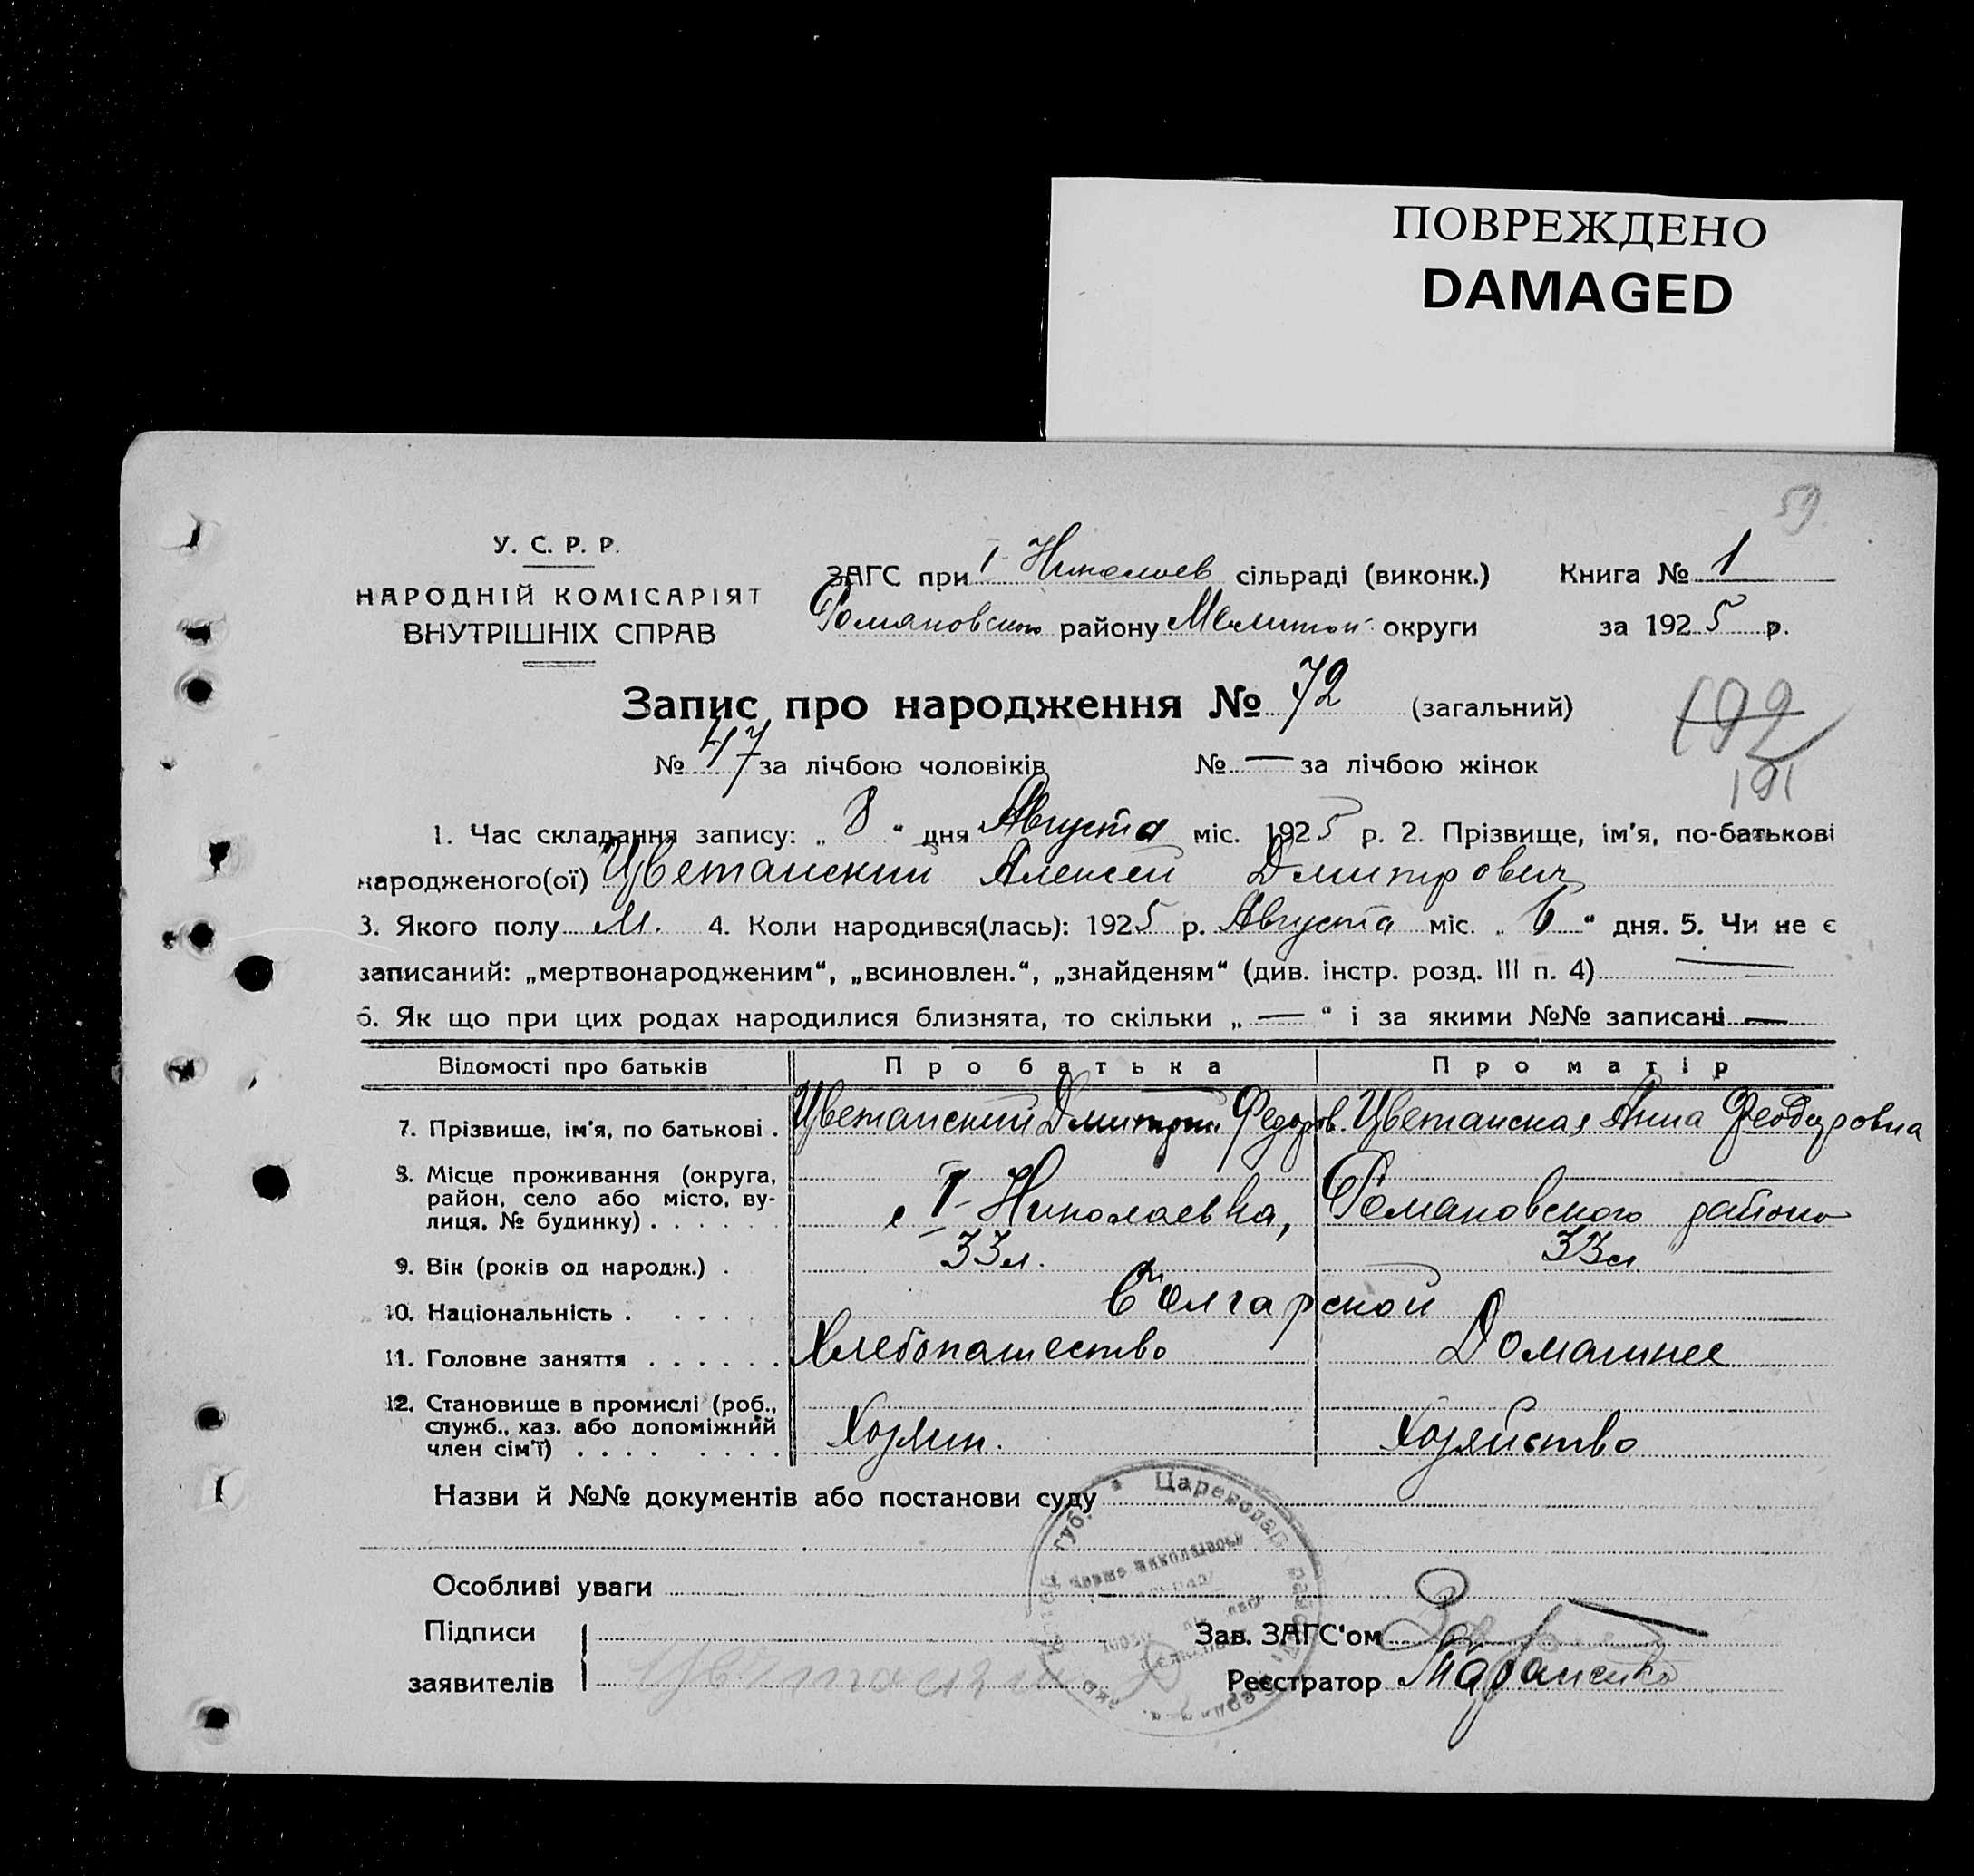 ПОВРЕЖДЕНО
DAMAGED
59
У. С. Р. Р.
НАРОДНІЙ КОМІСАРІЯТ
ВНУТРІШНІХ СПРАВ
ЗАГС при I Николаев сільраді (виконк.) Книга № 1
Романовского району Мелитоп. округи за 1925 р.
Запис про народження № 72 (загальний)
192
191
№ 47 за лічбою чоловіків № — за лічбою жінок
1. Час складання запису: „ 8 “ дня Августа міс. 1925 р. 2. Прізвище, ім'я, по-батькові
народженого(ої) Цветанский Алексей Дмитрович
3. Якого полу М. 4. Коли народився(лась): 1925 р. Августа міс. „ 6 “ дня. 5. Чи не є
записаний: „мертвонародженим“, „всиновлен.“, „знайденям“ (див. інстр. розд. III п. 4) —
6. Як що при цих родах народилися близнята, то скільки „ — “ і за якими №№ записані —
Відомості про батьків Про батька Про матір
7. Прізвище, ім'я, по батькові . Цветанский Дмитрий Федоров. Цветанская Анна Феодоровна
8. Місце проживання (округа,
район, село або місто, ву-
лиця, № будинку) . . . . . . с I Николаевка, Романовского района
9. Вік (років од народж.) . 33 л. 33 л
10. Національність . . . . . Болгарской
11. Головне заняття . . . . . . Хлебопашество Домашнее
12. Становище в промислі (роб.,
служб., хаз. або допоміжний
член сім'ї) . . . . . . . . Хозяин. Хозяйство
Назви й №№ документів або постанови суду
губ. Цареводар
Особливі уваги
Підписи
заявителів
Зав. ЗАГС'ом
Реєстратор